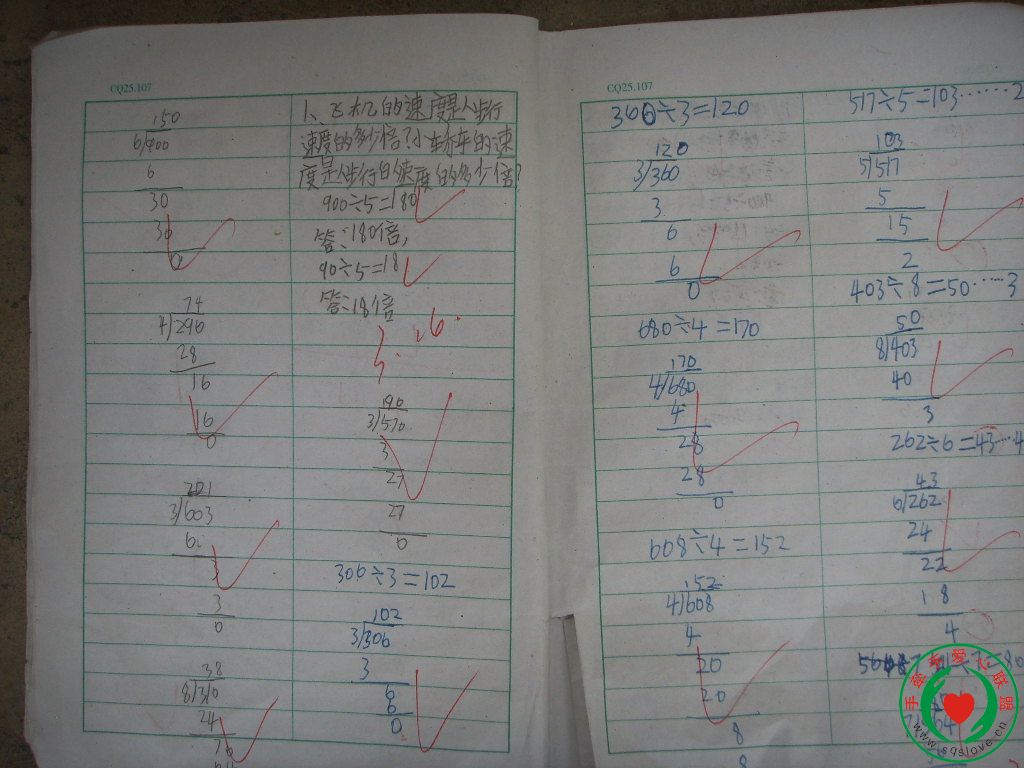 CQ25.107
150
6/900
6
30
30
0
74
4/296
28
16
16
0
201
3/603
6
3
3
0
38
8/310
24
76
1、飞机的速度是人步行
速度的多少倍?小轿车的速
度是人步行的速度的多少倍?
900÷5=180
答:180倍,
90÷5=18
答:18倍
190
3/570
3
27
27
0
306÷3=102
102
3/306
3
6
6
0
CQ25.107
360÷3=120
120
3/360
3
6
6
0
680÷4=170
170
4/680
4
28
28
0
608÷4=152
152
4/608
4
20
20
8
8
517÷5=103……2
103
5/517
5
15
2
403÷8=50……3
50
8/403
40
3
262÷6=43…4
43
6/262
24
22
18
4
手拉手爱心联盟
www.sqslove.cn